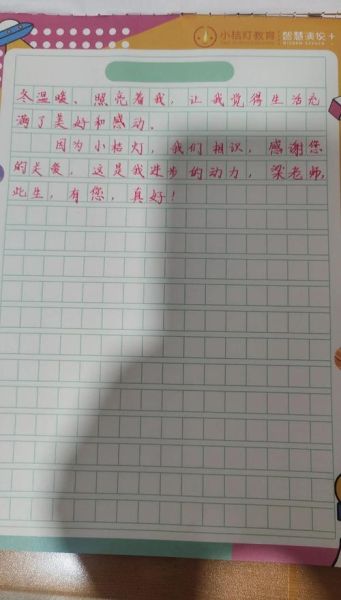 小桔灯教育 智慧演说+
冬温暖、照亮着我,让我觉得生活充
满了美好和感动。
因为小桔灯,我们相识,感谢您
的关爱,这是我进步的动力,梁老师,
此生,有您,真好!